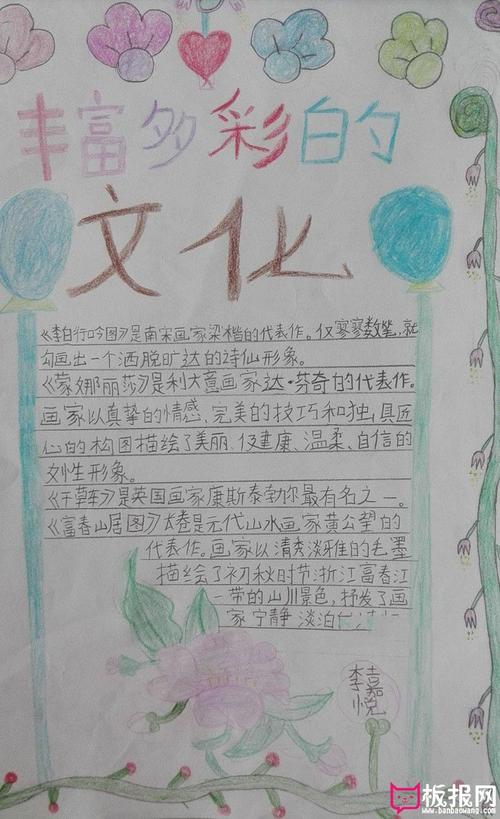 丰富多彩的
文化
《李白行吟图》是南宋画家梁楷的代表作。仅寥寥数笔，就
勾画出一个洒脱旷达的诗仙形象。
《蒙娜丽莎》是利大意画家达·芬奇的代表作。
画家以真挚的情感、完美的技巧和独具匠
心的构图描绘了美丽、健康、温柔、自信的
女性形象。
《干草车》是英国画家康斯泰勃尔最有名之一。
《富春山居图》长卷是元代山水画家黄公望的
代表作。画家以清秀淡雅的毛墨
描绘了初秋时节浙江富春江
一带的山川景色，抒发了画
家宁静淡泊
李嘉悦
板报网
www.banbaowang.com